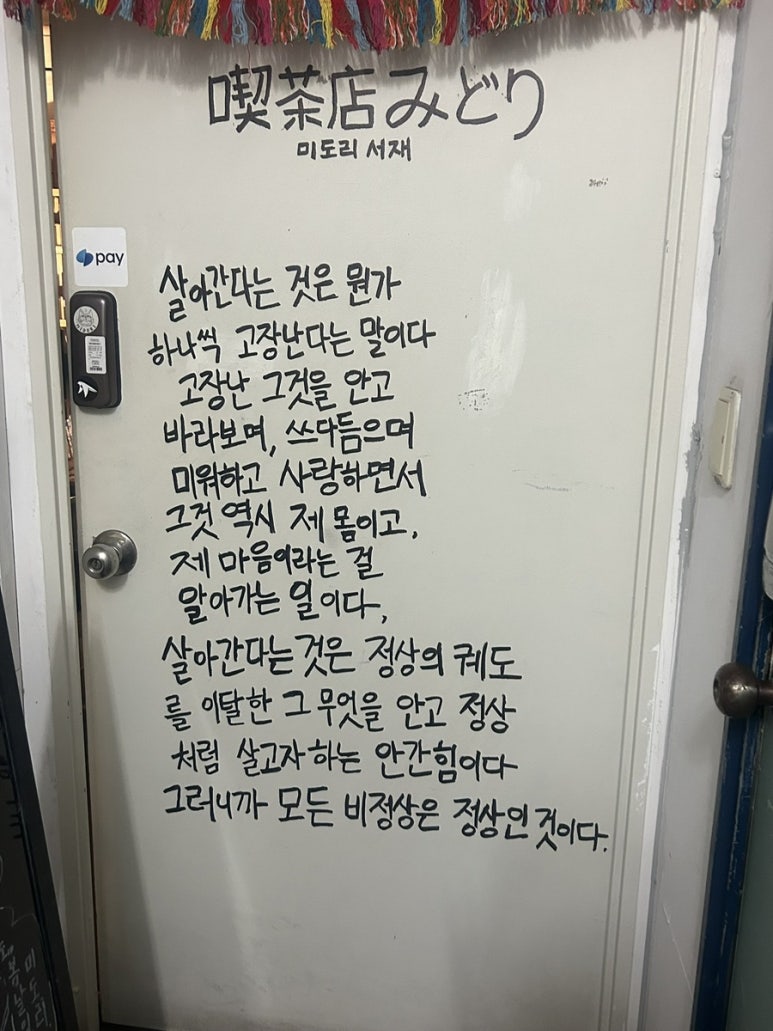 喫茶店みどり
미도리 서재
pay
살아간다는 것은 뭔가
하나씩 고장난다는 말이다
고장난 그것을 안고
바라보며, 쓰다듬으며
미워하고 사랑하면서
그것 역시 제 몸이고,
제 마음이라는 걸
알아가는 일이다,
살아간다는 것은 정상의 궤도
를 이탈한 그 무엇을 안고 정상
처럼 살고자 하는 안간힘이다
그러니까 모든 비정상은 정상인 것이다.